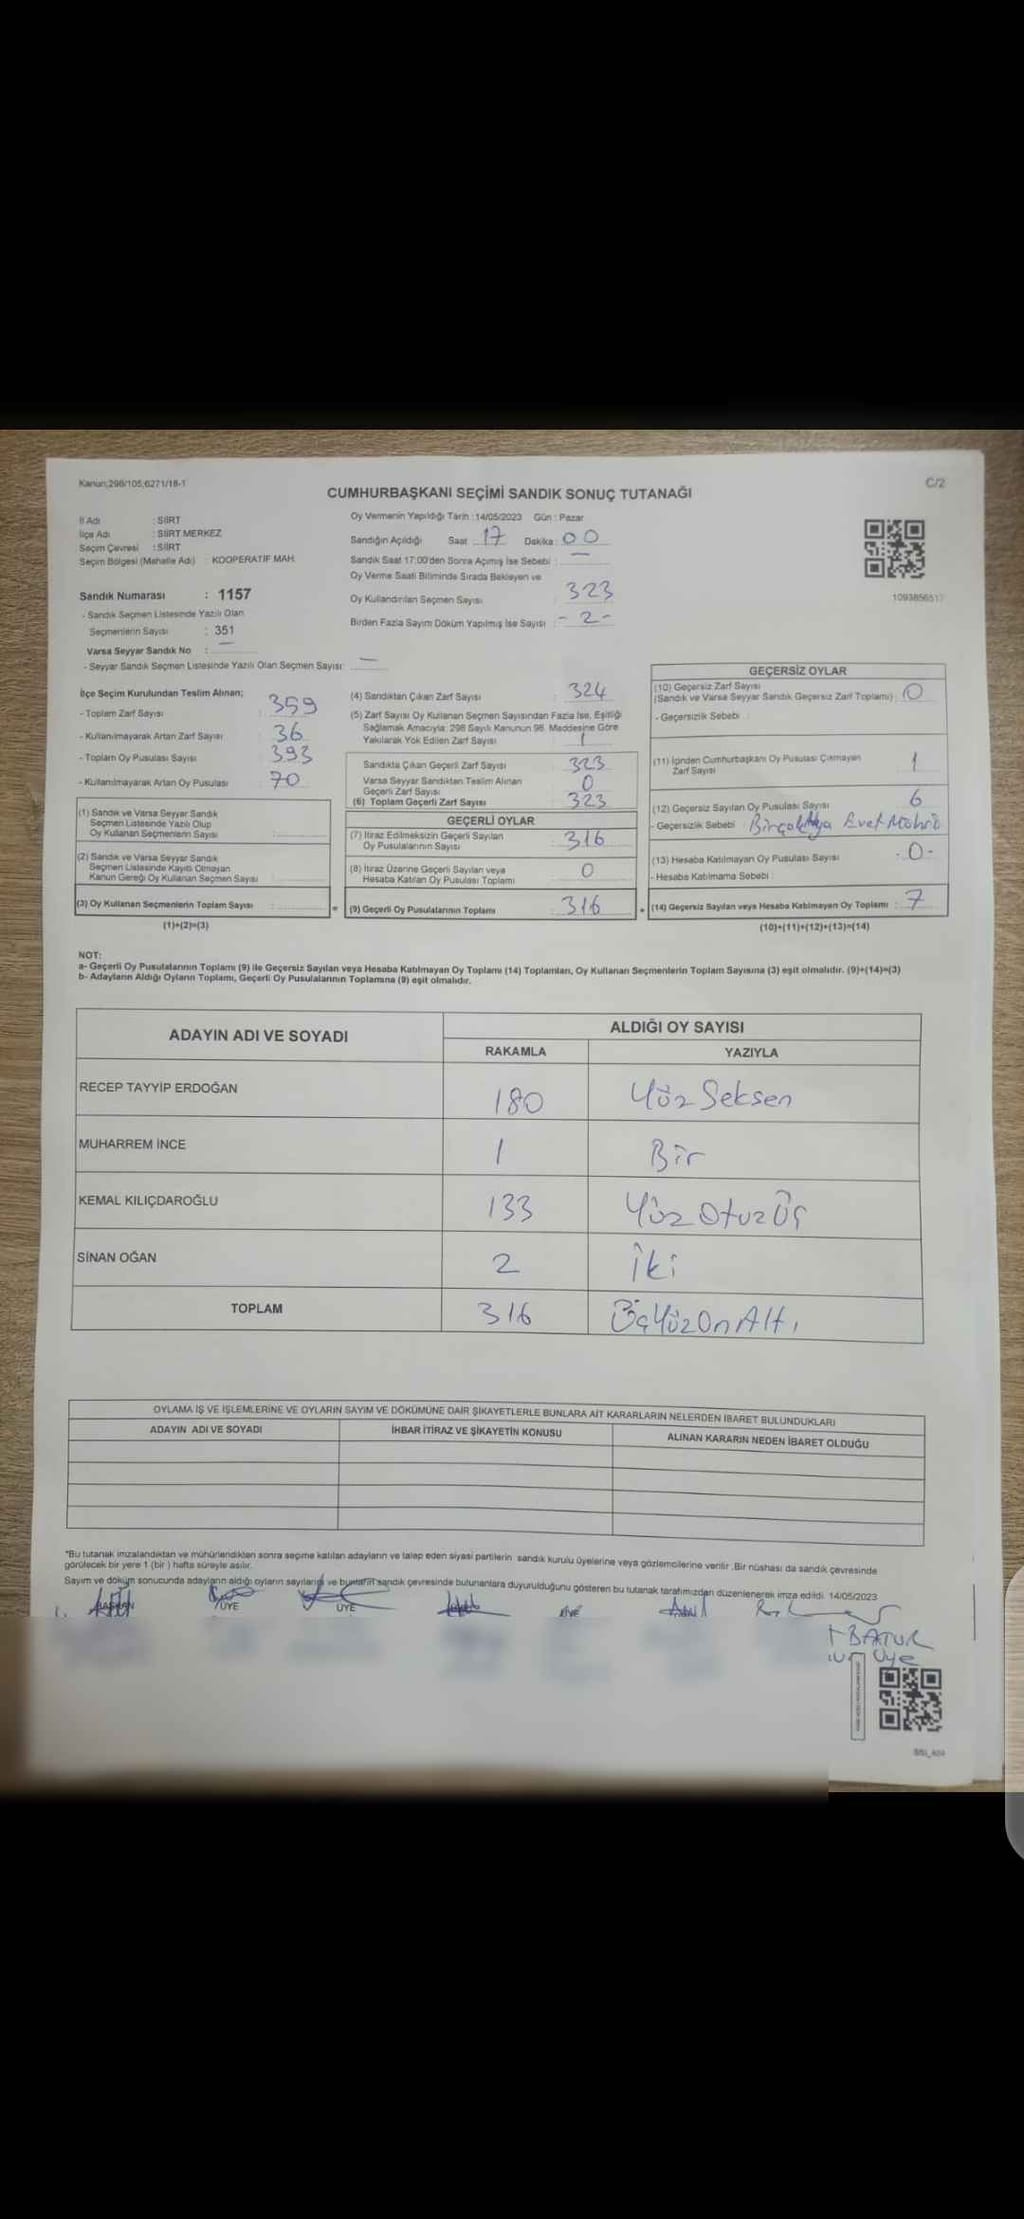 Kanun;298/105,6271/18-1
C/2
CUMHURBAŞKANI SEÇİMİ SANDIK SONUÇ TUTANAĞI
İl Adı : SİİRT
İlçe Adı : SİİRT MERKEZ
Seçim Çevresi : SİİRT
Seçim Bölgesi (Mahalle Adı) : KOOPERATİF MAH.
Sandık Numarası : 1157
- Sandık Seçmen Listesinde Yazılı Olan
Seçmenlerin Sayısı : 351
Varsa Seyyar Sandık No : —
- Seyyar Sandık Seçmen Listesinde Yazılı Olan Seçmen Sayısı: —
Oy Vermenin Yapıldığı Tarih : 14/05/2023 Gün : Pazar
Sandığın Açıldığı Saat : 17 Dakika : 00
Sandık Saat 17:00'den Sonra Açımış İse Sebebi : —
Oy Verme Saati Bitiminde Sırada Bekleyen ve
Oy Kullandırılan Seçmen Sayısı 323
Birden Fazla Sayım Döküm Yapılmış İse Sayısı : - 2 -
1093856517
İlçe Seçim Kurulundan Teslim Alınan;
- Toplam Zarf Sayısı : 359
- Kullanılmayarak Artan Zarf Sayısı : 36
- Toplam Oy Pusulası Sayısı : 393
- Kullanılmayarak Artan Oy Pusulası : 70
(1) Sandık ve Varsa Seyyar Sandık
Seçmen Listesinde Yazılı Olup
Oy Kullanan Seçmenlerin Sayısı :
(2) Sandık ve Varsa Seyyar Sandık
Seçmen Listesinde Kayıtlı Olmayan
Kanun Gereği Oy Kullanan Seçmen Sayısı :
(3) Oy Kullanan Seçmenlerin Toplam Sayısı :
(1)+(2)=(3)
(4) Sandıktan Çıkan Zarf Sayısı : 324
(5) Zarf Sayısı Oy Kullanan Seçmen Sayısından Fazla İse, Eşitliği
Sağlamak Amacıyla; 298 Sayılı Kanunun 98. Maddesine Göre
Yakılarak Yok Edilen Zarf Sayısı : 1
Sandıkta Çıkan Geçerli Zarf Sayısı : 323
Varsa Seyyar Sandıktan Teslim Alınan
Geçerli Zarf Sayısı : 0
(6) Toplam Geçerli Zarf Sayısı : 323
GEÇERLİ OYLAR
(7) İtiraz Edilmeksizin Geçerli Sayılan
Oy Pusulalarının Sayısı : 316
(8) İtiraz Üzerine Geçerli Sayılan veya
Hesaba Katılan Oy Pusulası Toplamı : 0
= (9) Geçerli Oy Pusulalarının Toplamı : 316
GEÇERSİZ OYLAR
(10) Geçersiz Zarf Sayısı
(Sandık ve Varsa Seyyar Sandık Geçersiz Zarf Toplamı) : 0
- Geçersizlik Sebebi :
(11) İçinden Cumhurbaşkanı Oy Pusulası Çıkmayan
Zarf Sayısı : 1
(12) Geçersiz Sayılan Oy Pusulası Sayısı : 6
- Geçersizlik Sebebi : Evet
(13) Hesaba Katılmayan Oy Pusulası Sayısı : - 0 -
- Hesaba Katılmama Sebebi :
+ (14) Geçersiz Sayılan veya Hesaba Katılmayan Oy Toplamı : 7
(10)+(11)+(12)+(13)=(14)
NOT:
a- Geçerli Oy Pusulalarının Toplamı (9) ile Geçersiz Sayılan veya Hesaba Katılmayan Oy Toplamı (14) Toplamları, Oy Kullanan Seçmenlerin Toplam Sayısına (3) eşit olmalıdır. (9)+(14)=(3)
b- Adayların Aldığı Oyların Toplamı, Geçerli Oy Pusulalarının Toplamına (9) eşit olmalıdır.
ADAYIN ADI VE SOYADI ALDIĞI OY SAYISI
RAKAMLA YAZIYLA
RECEP TAYYİP ERDOĞAN 180 Yüz Seksen
MUHARREM İNCE 1 Bir
KEMAL KILIÇDAROĞLU 133 Yüz Otuz Üç
SİNAN OĞAN 2 İki
TOPLAM 316 ÜçYüzOnAltı
OYLAMA İŞ VE İŞLEMLERİNE VE OYLARIN SAYIM VE DÖKÜMÜNE DAİR ŞİKAYETLERLE BUNLARA AİT KARARLARIN NELERDEN İBARET BULUNDUKLARI
ADAYIN ADI VE SOYADI İHBAR İTİRAZ VE ŞİKAYETİN KONUSU ALINAN KARARIN NEDEN İBARET OLDUĞU
*Bu tutanak imzalandıktan ve mühürlendikten sonra seçime katılan adayların ve talep eden siyasi partilerin sandık kurulu üyelerine veya gözlemcilerine verilir .Bir nüshası da sandık çevresinde
görülecek bir yere 1 (bir ) hafta süreyle asılır.
Sayım ve döküm sonucunda adayların aldığı oyların sayılarını ve bunların sandık çevresinde bulunanlara duyurulduğunu gösteren bu tutanak tarafımızdan düzenlenerek imza edildi. 14/05/2023
BAŞKAN ÜYE ÜYE ÜYE
BATUR
Üye